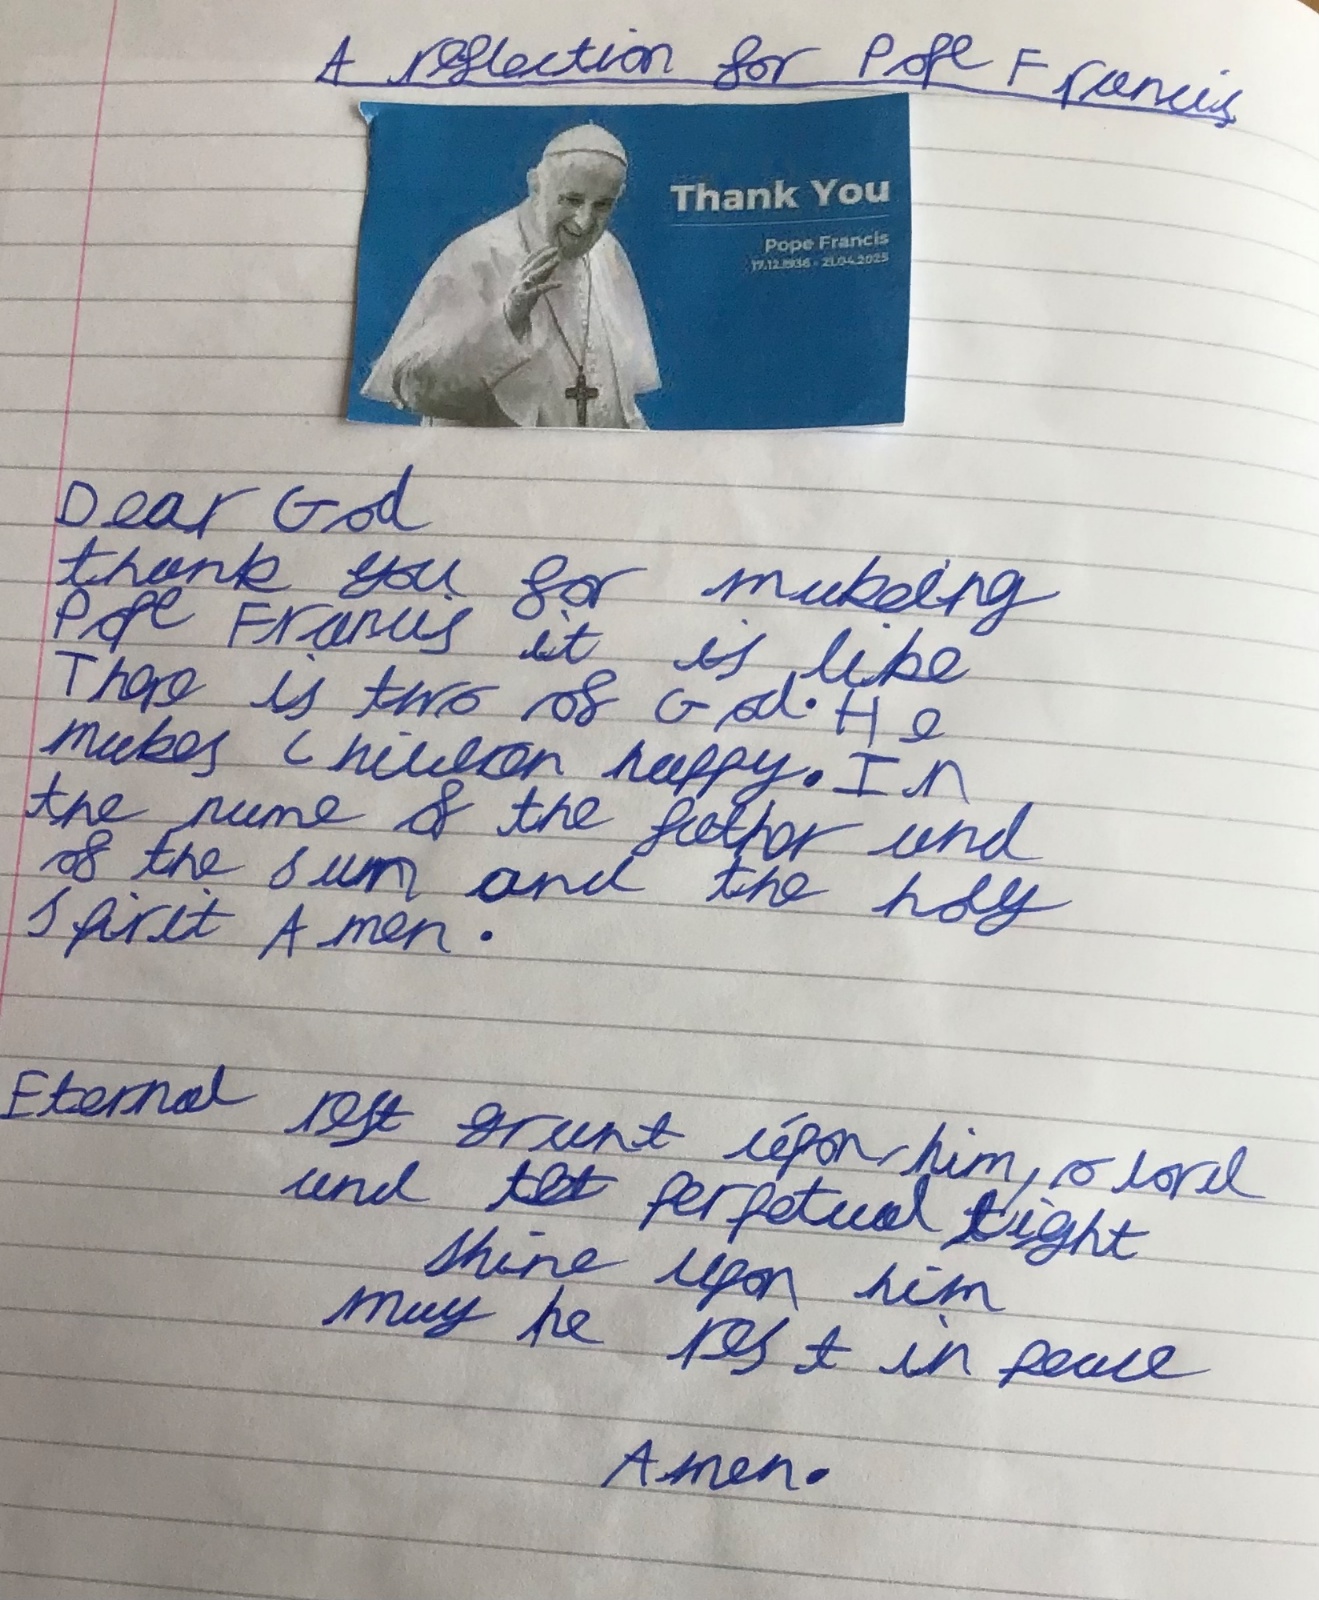 A reflection for Pope Francis
Thank You
Pope Francis
17.12.1936 - 21.04.2025
Dear God
thank you for makeing
Pope Francis it is like
There is two of God. He
makes children happy. In
the name of the father and
of the sun and the holy
spirit Amen.
Eternal rest grant upon him, o lord
and let perpetual light
shine upon him
may he rest in peace
Amen.